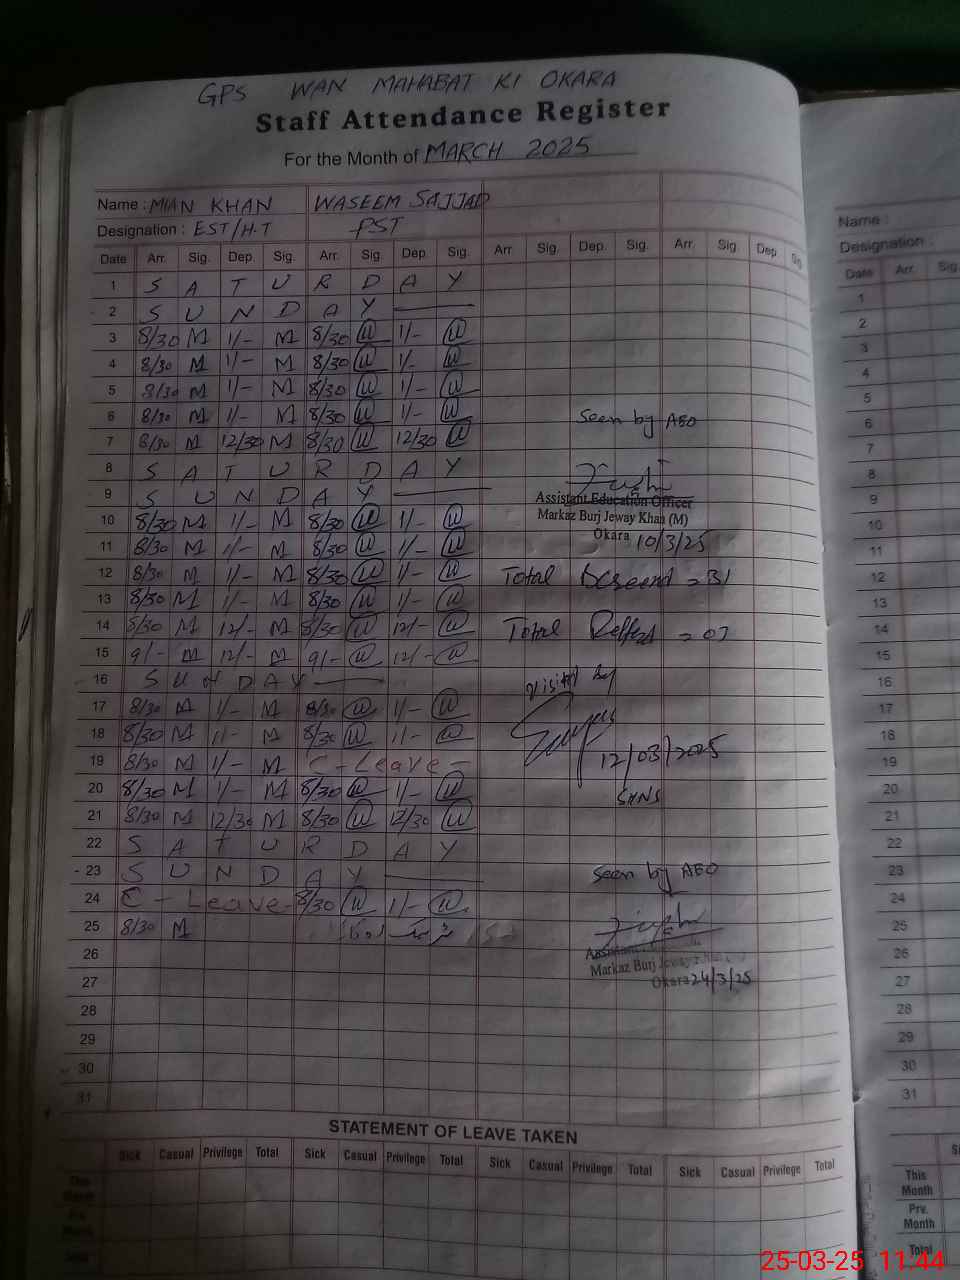 GPS WAN MAHABAT KI OKARA
Staff Attendance Register
For the Month of MARCH 2025
Name : MIAN KHAN WASEEM SAJJAD
Designation : EST/H.T PST
Date Arr. Sig. Dep. Sig. Arr. Sig. Dep. Sig. Arr. Sig. Dep. Sig. Arr. Sig. Dep. Sig.
1 S A T U R D A Y
2 S U N D A Y
3 8/30 M 1/- M 8/30 W 1/- W
4 8/30 M 1/- M 8/30 W 1/- W
5 8/30 M 1/- M 8/30 W 1/- W
6 8/30 M 1/- M 8/30 W 1/- W
Seen by AEO
7 8/30 M 12/30 M 8/30 W 12/30 W
8 S A T U R D A Y
9 S U N D A Y
Assistant Education Officer
Markaz Burj Jeway Khan (M)
Okara 10/3/25
10 8/30 M 1/- M 8/30 W 1/- W
11 8/30 M 1/- M 8/30 W 1/- W
12 8/30 M 1/- M 8/30 W 1/- W
Total = 31
13 8/30 M 1/- M 8/30 W 1/- W
14 8/30 M 12/- M 8/30 W 12/- W
Total = 07
15 9/- M 12/- M 9/- W 12/- W
16 S U N D A Y
Visited By
17 8/30 M 1/- M 8/30 W 1/- W
18 8/30 M 1/- M 8/30 W 1/- W
19 8/30 M 1/- M C - Leave -
12/03/2025
20 8/30 M 1/- M 8/30 W 1/- W
21 8/30 M 12/30 M 8/30 W 12/30 W
22 S A T U R D A Y
23 S U N D A Y
Seen by AEO
24 C - Leave - 8/30 W 1/- W
25 8/30 M
26
Markaz Burj Jeway
27
Okara 24/3/25
28
29
30
31
STATEMENT OF LEAVE TAKEN
Sick Casual Privilege Total Sick Casual Privilege Total Sick Casual Privilege Total Sick Casual Privilege Total
Name :
Designation :
Date Arr. Sig.
1
2
3
4
5
6
7
8
9
10
11
12
13
14
15
16
17
18
19
20
21
22
23
24
25
26
27
28
29
30
31
This Month
Prv. Month
Total
25-03-25 11:44